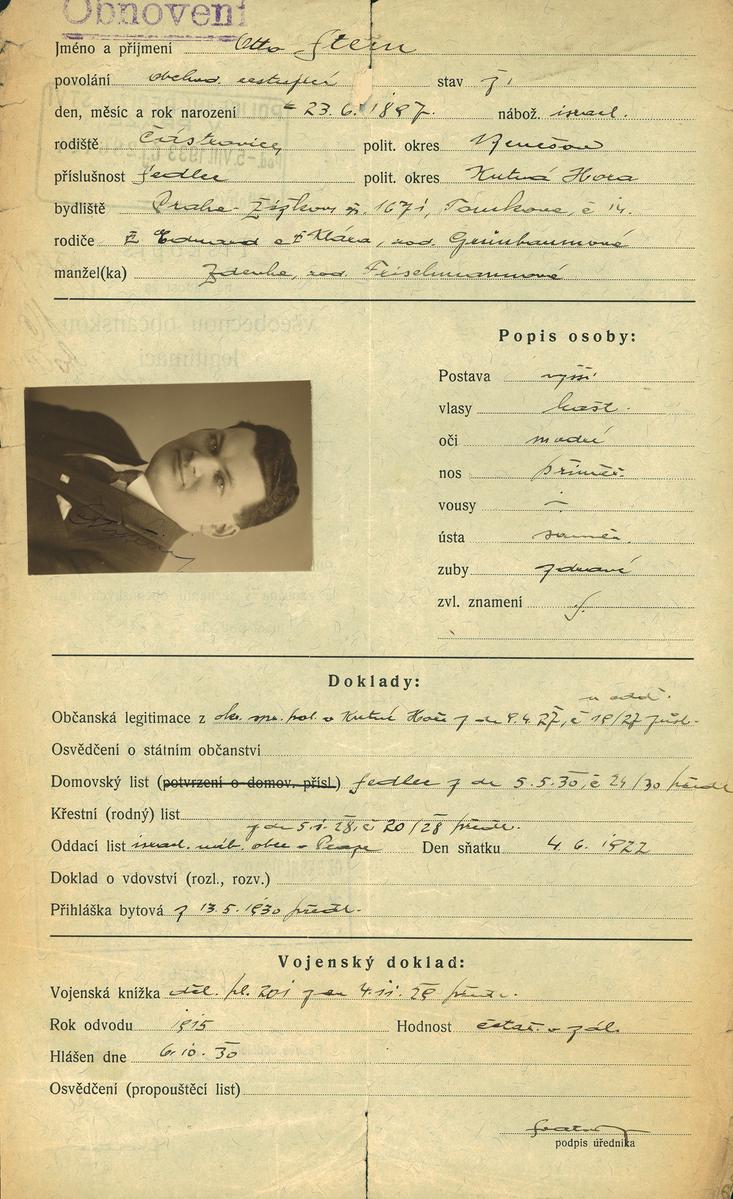 Obnovení
Jméno a příjmení Otto Stein
povolání obchod. cestující stav ž.
den, měsíc a rok narození 23. 6. 1897. nábož. israel.
rodiště polit. okres Benešov
příslušnost Sedlec polit. okres Kutná Hora
bydliště Praha-Žižkov 1671, Tomkova, č 14.
rodiče Eduard a Klára, roz. Grünbaumové
manžel(ka) Zdenka, roz.
Popis osoby:
Postava vyšší
vlasy kašt.
oči modré
nos přiměř.
vousy –
ústa souměr.
zuby zdravé
zvl. znamení
Doklady:
Občanská legitimace z okr. pol. v Kutné Hoře z 9.4.27, č 19/27
Osvědčení o státním občanství
Domovský list (potvrzení o domov. přísl.) Sedlec z de 5.5.30, č 24/30 předl.
Křestní (rodný) list
z de 5.1.28, č 20/28 předl.
Oddací list israel. náb. obce v Praze Den sňatku 4. 6. 1922
Doklad o vdovství (rozl., rozv.)
Přihláška bytová z 13.5.1930 předl.
Vojenský doklad:
Vojenská knížka děl. pl. 201 4.11.28 předl.
Rok odvodu 1915 Hodnost četař v zál.
Hlášen dne 6.10.30
Osvědčení (propouštěcí list)
podpis úředníka